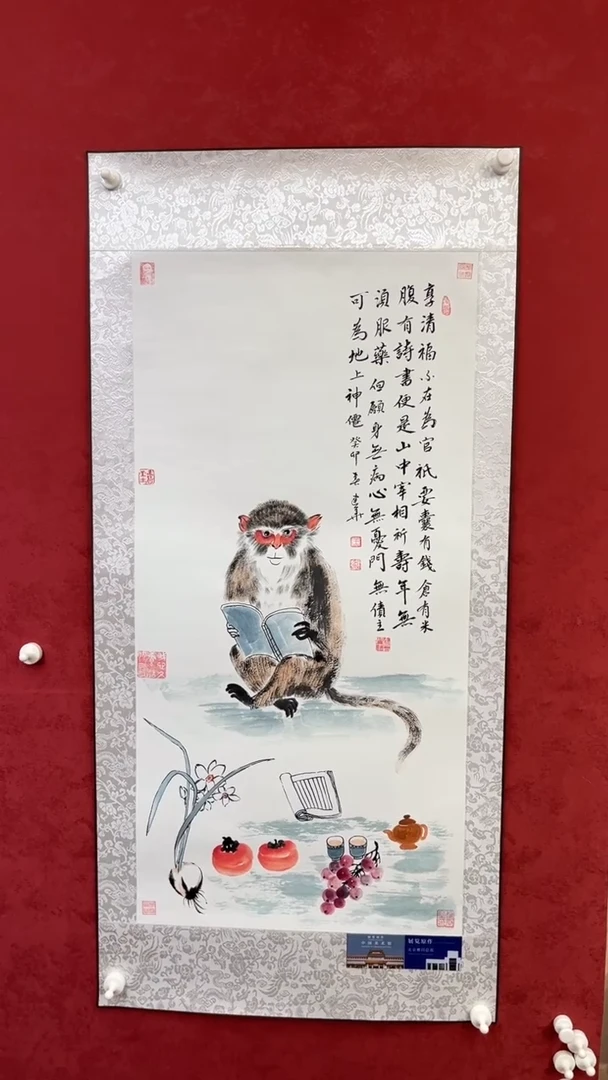 享清福不在為官祇要囊有錢倉有米
腹有詩書便是山中宰相祈壽年無
須服藥但願身無病心無憂門無債主
可為地上神僊癸卯
中国美术馆
展览原作